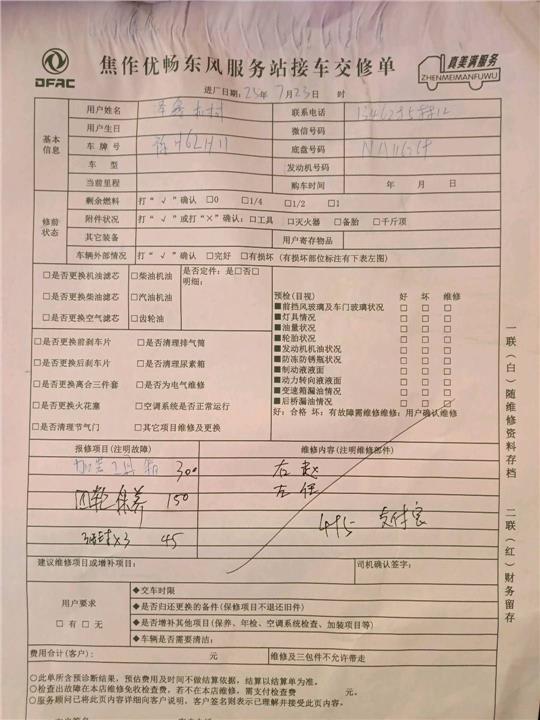 DFAC
焦作优畅东风服务站接车交修单
真美满服务
ZHENMEIMANFUWU
进厂日期: 25年 7月 23日 时
基本信息
用户姓名 联系电话
用户生日 微信号码
车牌号 H62H11 底盘号码
车型 发动机号码
当前里程 购车时间 年 月 日
修前状态
剩余燃料 打“√”确认 □0 □1/4 □1/2 □1
附件状况 打“√”或打“×”确认: □工具 □灭火器 □备胎 □千斤顶
其它装备 用户寄存物品
车辆外部情况 打“√”确认 □完好 □有损坏 (有损坏部位标注有下表左图)
□是否更换机油滤芯 □柴油机油 是否定件: 是□否□
□是否更换柴油滤芯 □汽油机油 明细:
□是否更换空气滤芯 □齿轮油
□是否更换前刹车片 □是否清理排气筒
□是否更换后刹车片 □是否清理尿素箱
□是否更换离合三件套 □是否为电气维修
□是否更换火花塞 □空调系统是否正常运行
□是否清理节气门 □其它项目维修及更换
预检(目视) 好 坏 维修
■前挡风玻璃及车门玻璃状况 □ □ □
■灯具情况 □ □ □
■油量状况 □ □ □
■轮胎状况 □ □ □
■发动机机油状况 □ □ □
■防冻防锈瓶状况 □ □ □
■制动液液面 □ □ □
■动力转向液液面 □ □ □
■变速箱漏油情况 □ □ □
■后桥漏油情况 □ □ □
好: 合格 坏: 有故障需维修维修: 用户确认维修
报修项目(注明故障) 维修内容(注明维修部件)
加装工具箱 300 右 赵
四轮保养 150 左 任
×3 45 495 支付宝
建议维修项目或增补项目: 司机确认签字:
用户要求
□有 □无
◆交车时限
◆是否归还更换的备件(保修项目不退还旧件)
◆是否增补其他项目(保养、年检、空调系统检查、加装项目等)
◆车辆是否需要清洁:
费用合计(客户): 元 维修及三包件不允许带走
○此单所含预诊断结果, 预估费用及时间不做结算依据, 结算以结算单为准。
○检查出故障在本店维修免收检查费, 若不在本店维修, 需支付检查费 元。
○服务顾问已将此页内容详细向客户说明, 客户签名则表示已理解并接受此页内容。
一联(白)随维修资料存档
二联(红)财务留存